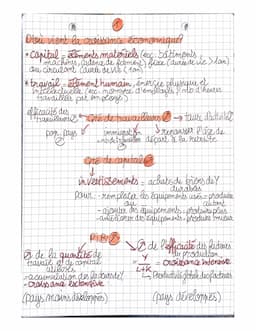 1
D'où vient la croissance économique?
* capital = éléments matériels (ex: bâtiments,
machines, fixe (durée de vie > 1an)
ou circulant (durée de vie < 1an)
* travail = élément humain, énergie physique et
intellectuelle (ex: nombre d'employés / nb d'heures
travaillées par employé).
efficacité des
travailleurs
Qté de travailleurs → taux d'activité
par pays immigration repousser l'âge de
départ à la retraite
Qté de capital
investissements = achats de biens
durables
pour - remplacer les équipements usés = produire
autant
- ajouter des équipements = produire plus
- améliorer des équipements = produire mieux
PIB
de la quantité de
travail et de capital
utilisés
= accumulation des facteurs
= croissance extensive
(pays moins développés)
de l'efficacité des facteurs
de production
= Y / L+K = croissance intensive
↳ Productivité globale des facteurs
(pays développés)